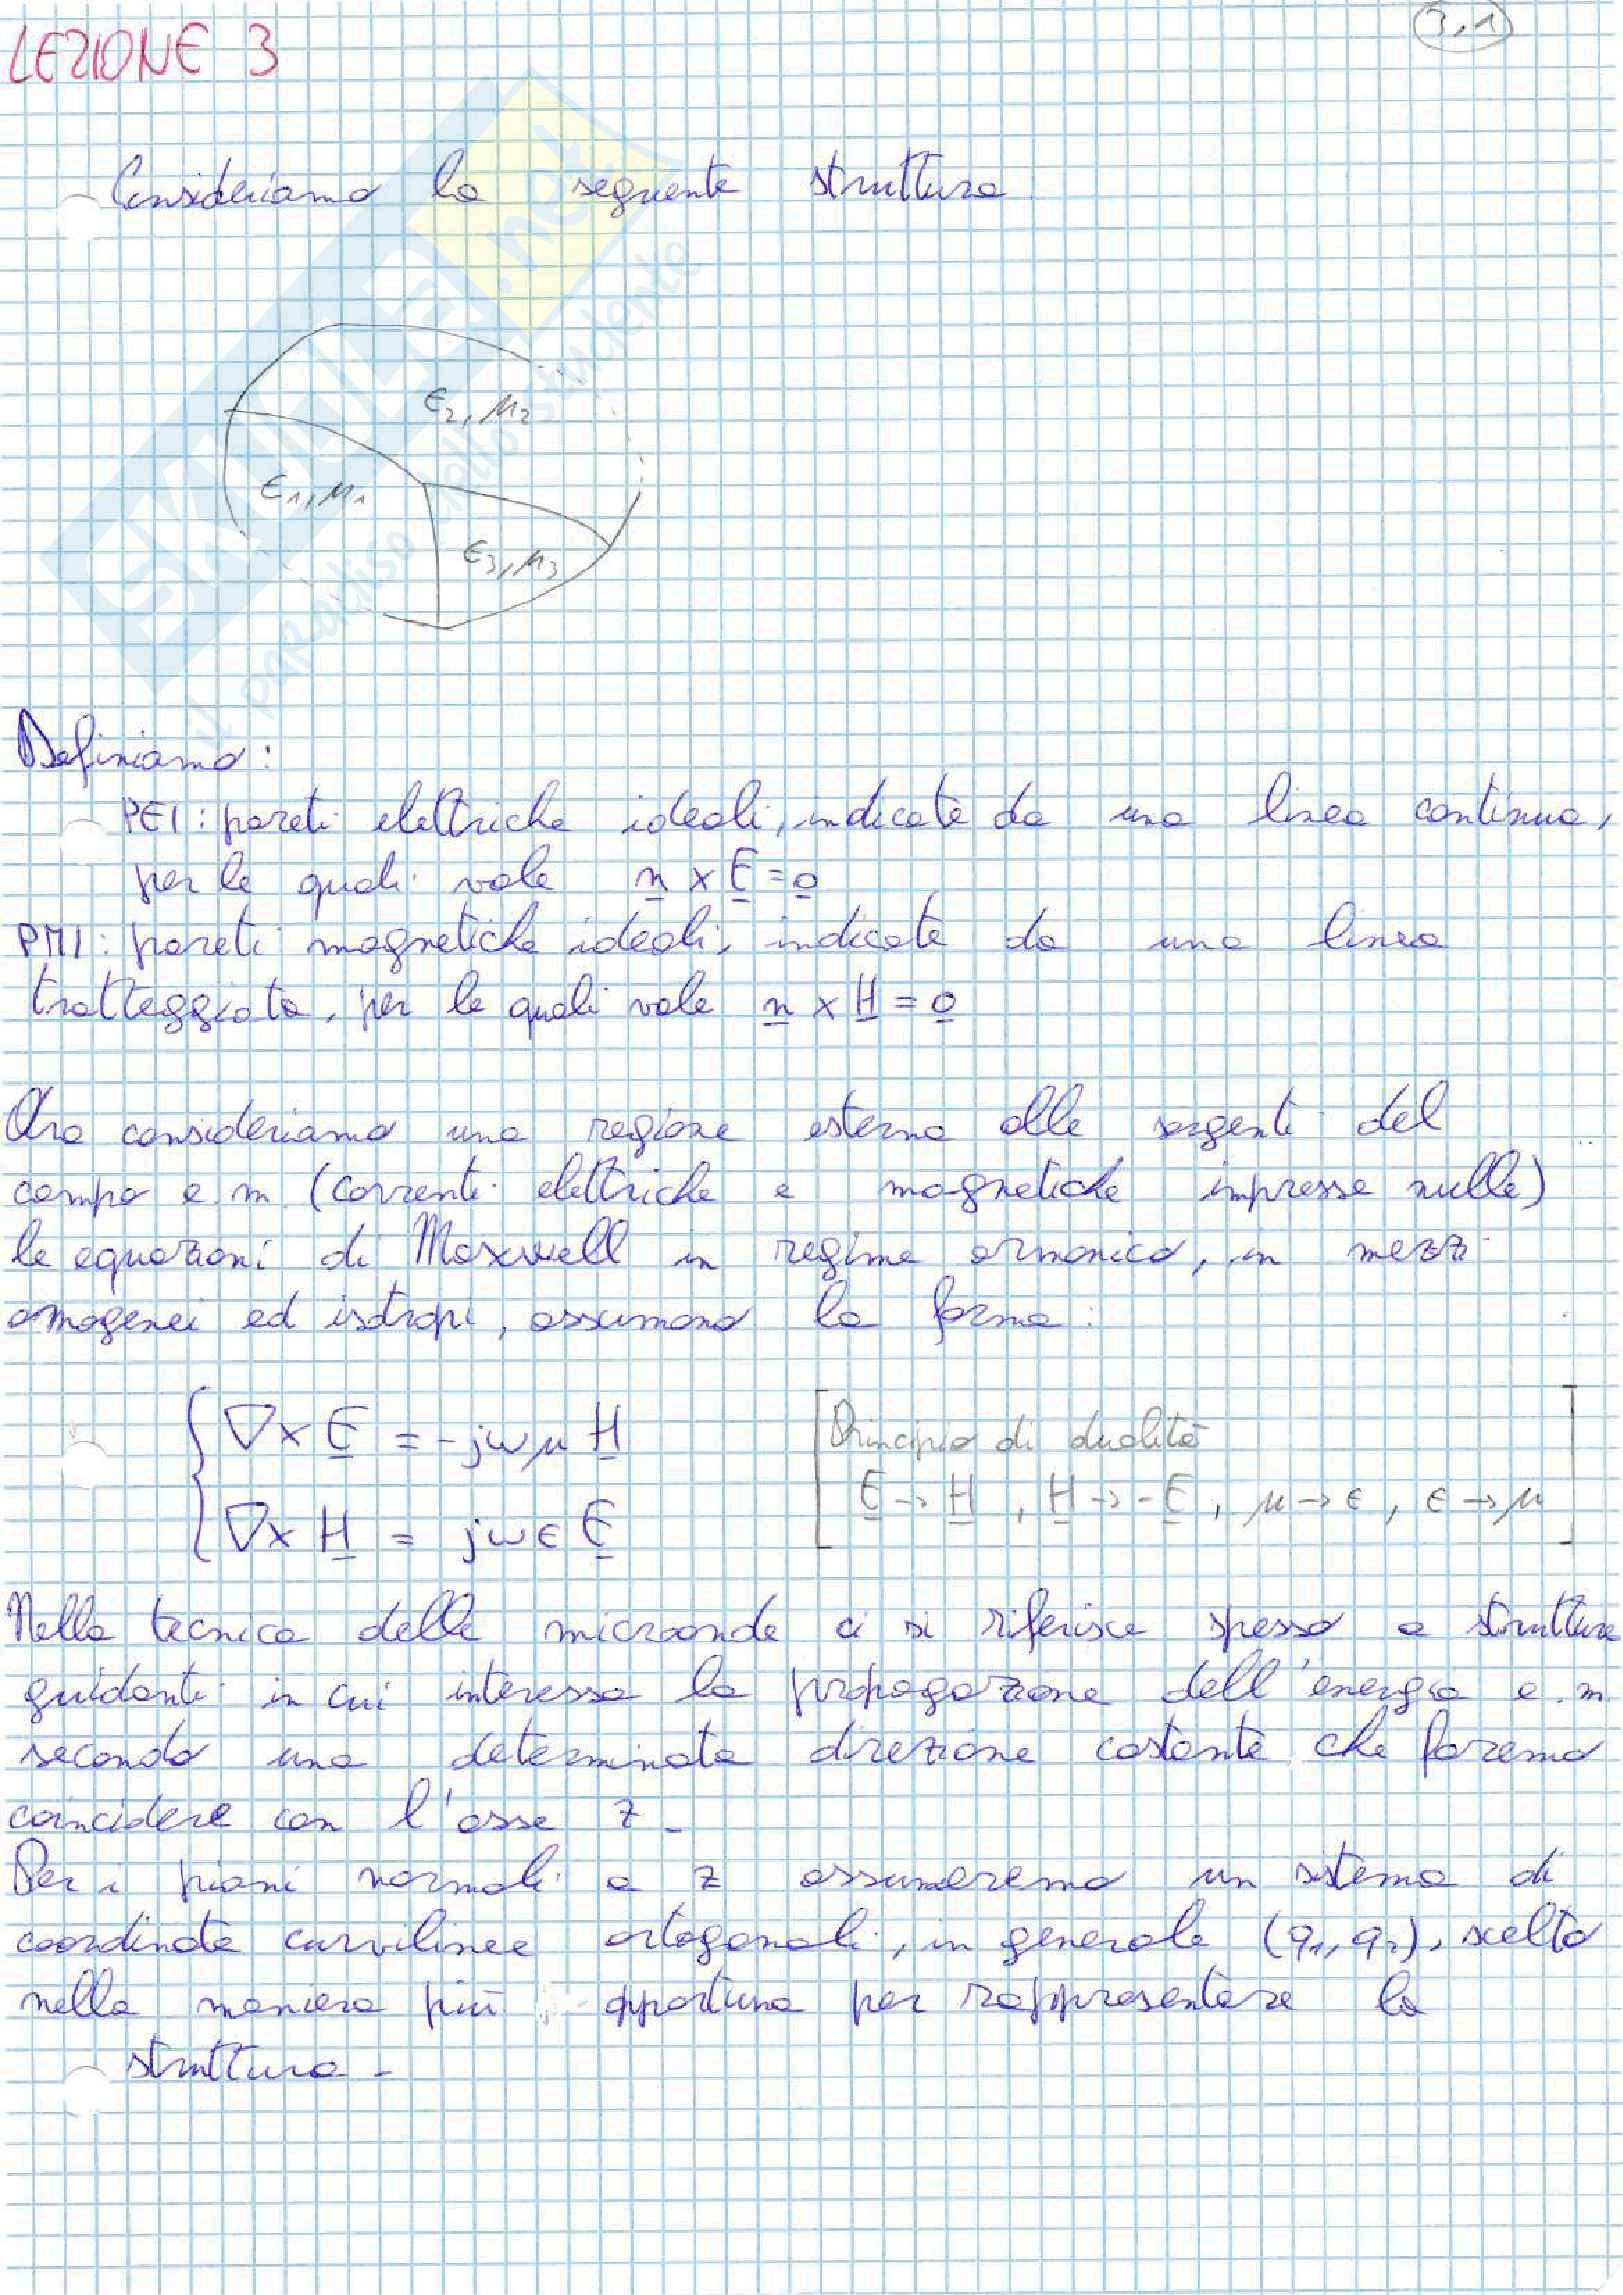 LEZIONE 3
3,1
Consideriamo la seguente struttura
ε₂, μ₂
ε₁, μ₁
ε₃, μ₃
SKUOLA.net
il paradiso dello studente
Definiamo:
PEI: pareti elettriche ideali, indicate da una linea continua,
per le quali vale n × E = 0
PMI: pareti magnetiche ideali, indicate da una linea
tratteggiata, per le quali vale n × H = 0
Ora consideriamo una regione esterna alle sorgenti del
campo e.m. (correnti elettriche e magnetiche impresse nulle)
le equazioni di Maxwell in regime armonico, in mezzi
omogenei ed isotropi, assumono la forma:
∇× E = -jωμ H
[Principio di dualità
∇× H = jωε E
E → H, H → -E, μ → ε, ε → μ]
Nella tecnica delle microonde ci si riferisce spesso a strutture
guidanti in cui interessa la propagazione dell'energia e.m.
secondo una determinata direzione costante che faremo
coincidere con l'asse z.
Per i piani normali a z assumeremo un sistema di
coordinate curvilinee ortogonali, in generale (q₁, q₂), scelto
nella maniera più opportuna per rappresentare la
struttura.